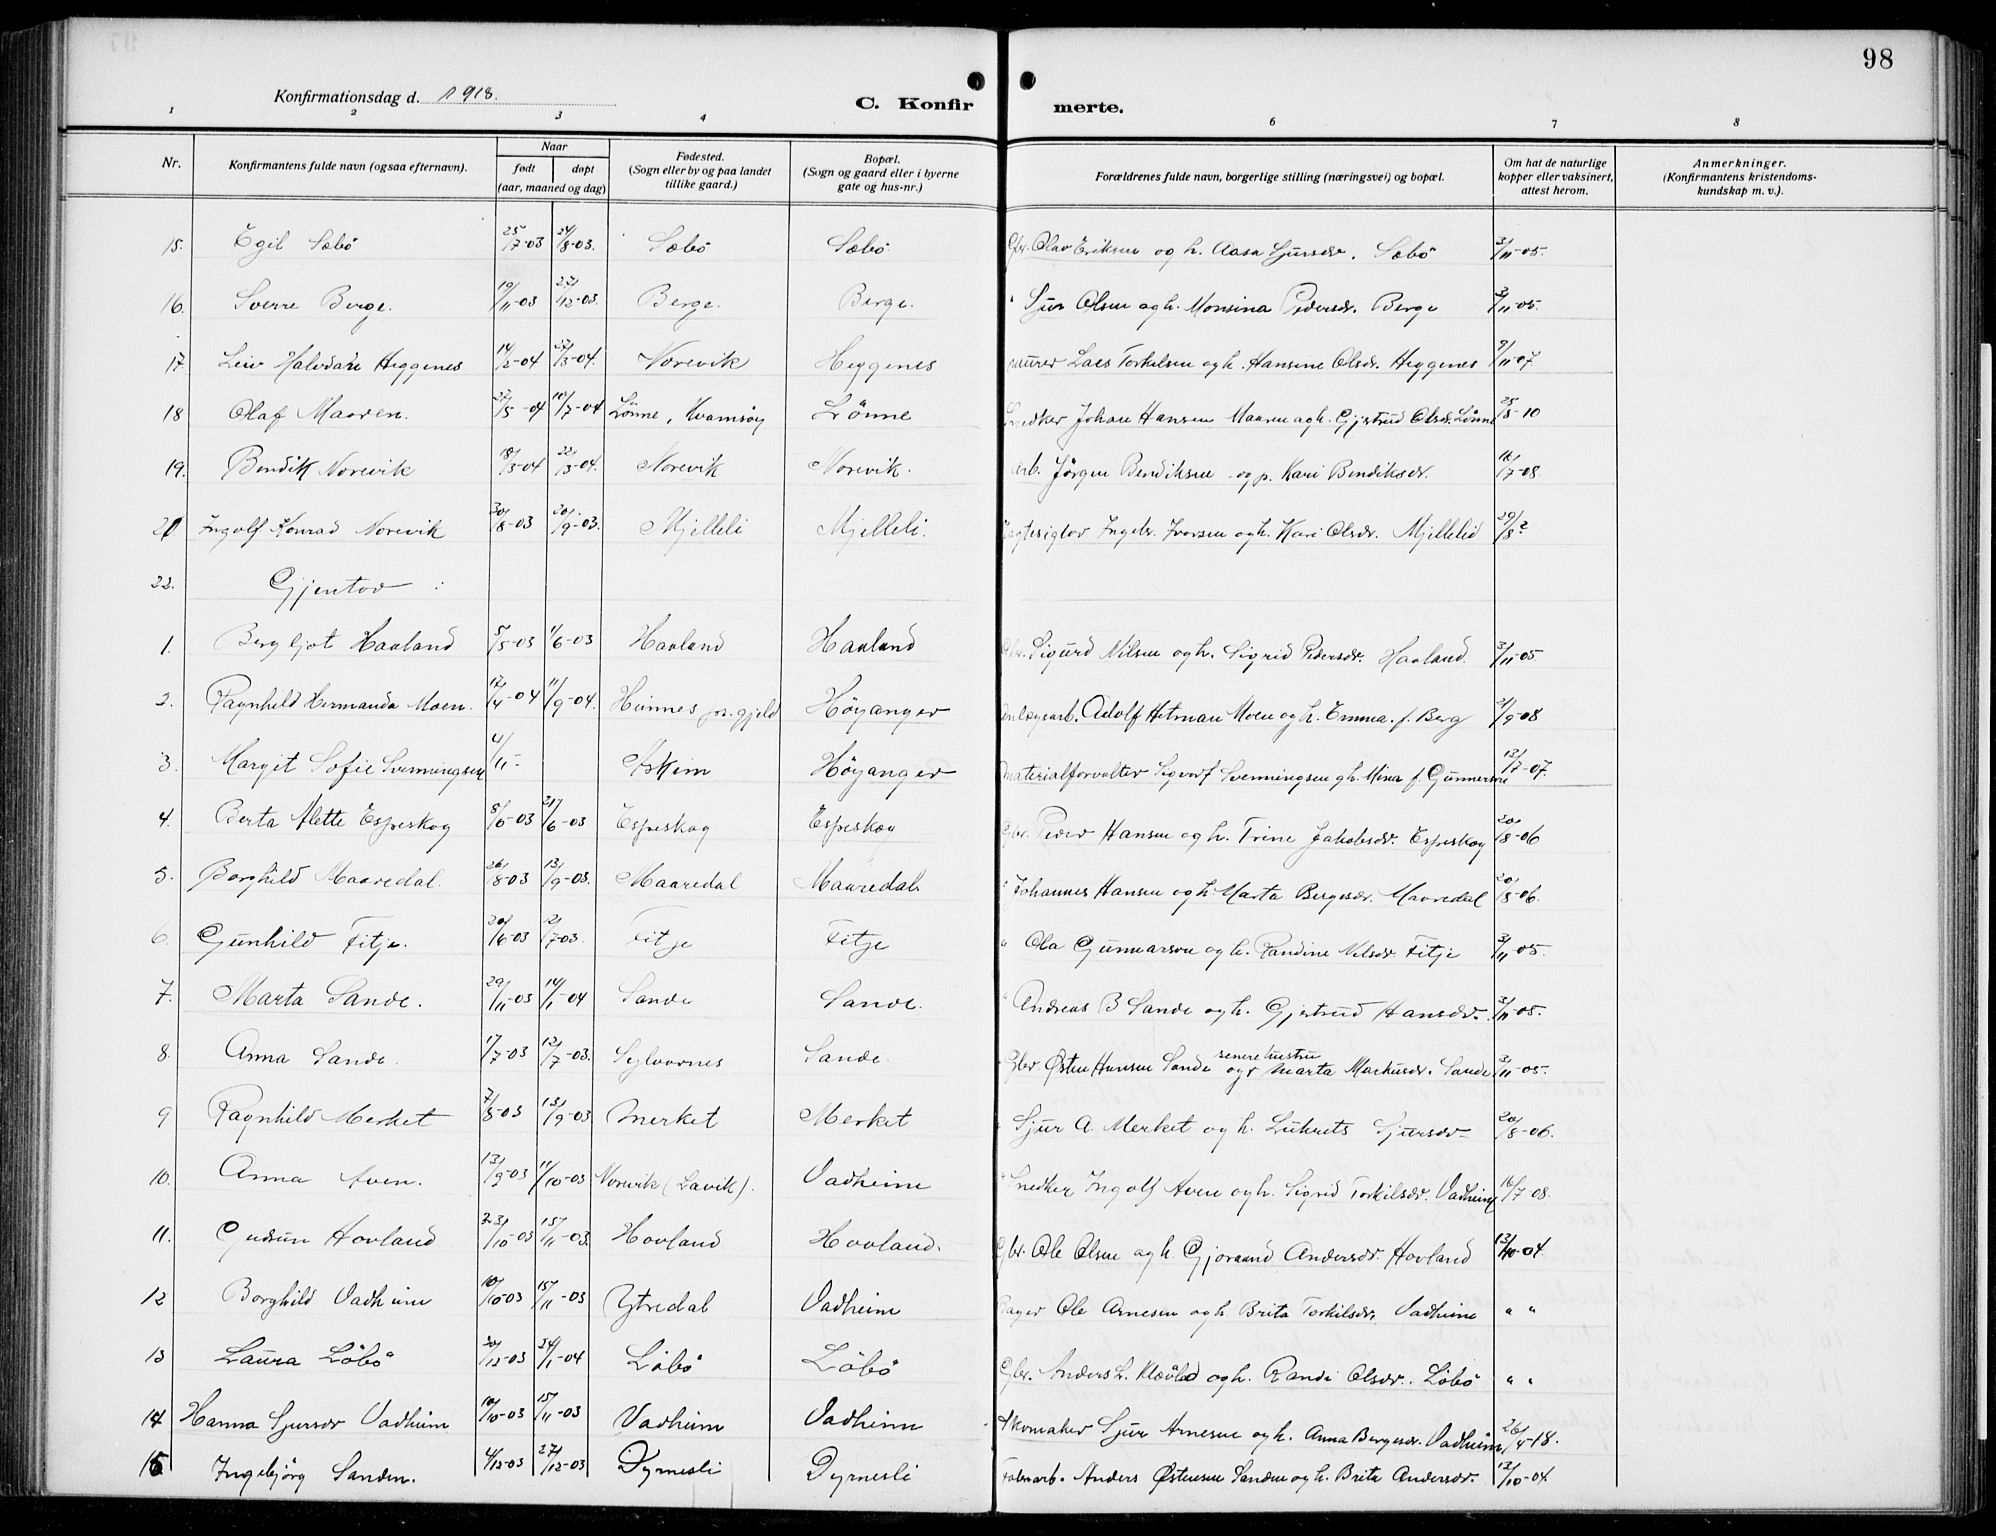 98
Konfirmationsdag d. 1918.
C. Konfir merte.
1 2 3 4 6 7 8
Nr. Konfirmantens fulde navn (ogsaa efternavn). Naar født døpt (aar, maaned og dag) Fødested. (Sogn eller by og paa landet tillike gaard.) Bopæl. (Sogn og gaard eller i byerne gate og hus-nr.) Forældrenes fulde navn, borgerlige stilling (næringsvei) og bopæl. Om hat de naturlige kopper eller vaksinert, attest herom. Anmerkninger. (Konfirmantens kristendoms- kundskap m. v.).
15. Egil Sæbö 25/7-03 24/8-03. Sæbö Sæbö Gbr. Olav Eriksen og h. Aasa Sjursdr. Sæbö 3/11-05.
16. Sverre Berge. 19/11-03 22/12-03. Berge. Berge. " Sjur Olsen og h. Monsina Pedersdr. Berge 3/11-05.
17. Leiv Halvdan Heggenes 14/2-04 /3-04. Norevik Heggenes murer Lars Torkelsen og h. Hansine Olsdr. Heggenes 9/11-07.
18 Olaf Maaren. 27/5-04 10/7-04 Lönne, Kvamsöy Lönne Snedker Johan Hansen Maaren og h. Gjertrud Olsdr. Lönne 25/8-10
19. Bendik Norevik 18/3-04 22/3-04. Norevik Norevik. arb. Jörgen Bendiksen og p. Kari Bendiksdr. /7-08.
21 Ingolf Konrad Norevik 30/8-03 20/9-03. Mjelleli Mjelleli. Ingebr. Iversen og h. Kari Olsdr. Mjellelid 29/8 ?
22. Gjentor :
1. Bergljot Haaland 5/5-03 1/6-03 Haaland Haaland Gbr. Sigurd Nilsen og h. Sigrid Pedersdr. Haaland. 3/11-05.
2. Ragnhild Hermanda Moen. 17/4-04 11/9-04. pr.gjeld Höyanger anlægsarb. Adolf Hitman Moen og h. Emma f. Berg /9-08
3. Margit Sofie Svenningsen 4/11- Askim Höyanger Materialforvalter Sigvart Svenningsen og h. Mina f. Gunnersen 13/7-07.
4. Berta Alette Espeskog 8/5-03 21/6-03 Espeskog Espeskog Gbr. Peder Hansen og h. Trine Jakobsdr. Espeskog 20/8-06
5. Borghild Maaredal. 26/8-03 13/9-03. Maaredal Maaredal " Johannes Hansen og h. Marta Bergesdr. Maaredal 20/8-06.
6. Gunhild Fitje. 20/6-03 12/7-03. Fitje Fitje " Ola Gunnarson og h. Randine Nilsdr. Fitje 3/11-05.
7. Marta Sande. 29/11-03 14/1-04 Sande Sande. " Andreas B Sande og h. Gjertrud Hansdr. 3/11-05.
8. Anna Sande. 1/7-03 12/7-03. Seglvornes Sande. Gbr Østen Hansen Sande og senere hustru Marta Markusdr. Sande 3/11-05.
9 Ragnhild Merket 7/8-03 13/9-03 Merket Merket " Sjur A. Merket og h. Sjursdr. 20/8-06.
10. Anna Aven. 13/9-03 11/10-03 Norevik (Lavik). Vadheim " Snedker Ingolf Aven og h. Sigrid Torkilsdr. Vadheim 16/7-08.
11. Gudrun Hovland 23/10-03 15/11-03. Hovland Hovland. Gbr. Ole Olsen og h. Gjoraand Andersdr. Hovland 13/10-04.
12 Borghild Vadheim 10/10-03 15/11-03 Ytredal Vadheim Bager Ole Arnesen og h. Brita Torkilsdr. Vadheim " "
13 Laura Löbö 30/12-03 24/1-04 Löbö Löbö Gbr. Anders L. og h. Randi Olsdr. Löbö " "
14 Hanna Sjursdr Vadheim 10/10-03 15/11-03 Vadheim Vadheim Skomaker Sjur Arnesen og h. Anna Bergesdr. Vadheim 26/4-18.
15 Ingebjörg Sanden. 4/12-03 27/12-03 Dyrnesli Dyrnesli Anders Östensen Sanden og h. Brita Andersdr. 13/10-04.